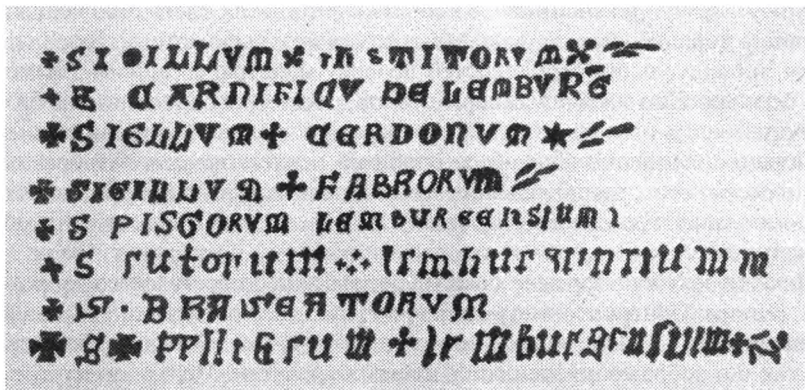 ✠ SIGILLVM ✠ INSTITORVM
+ S CARNIFICV DE LEMBVRG
✠ SIGLLVM + CERDONVM ✶
✠ SIGILLVM + FABRORVM
✠ S PISTORVM LEMBURGENSIUM
+ S sutorum
✠ S · BRASEATORVM
✠ S ✠ pellificum + lemburgensium +